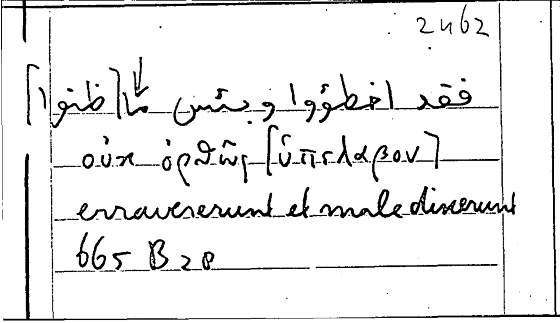 2462
فقد اخطؤوا وبئس ما [ظنوا]
οὐκ ὀρθῶς [ὑπέλαβον]
erravererunt et male dixerunt
665 B 28